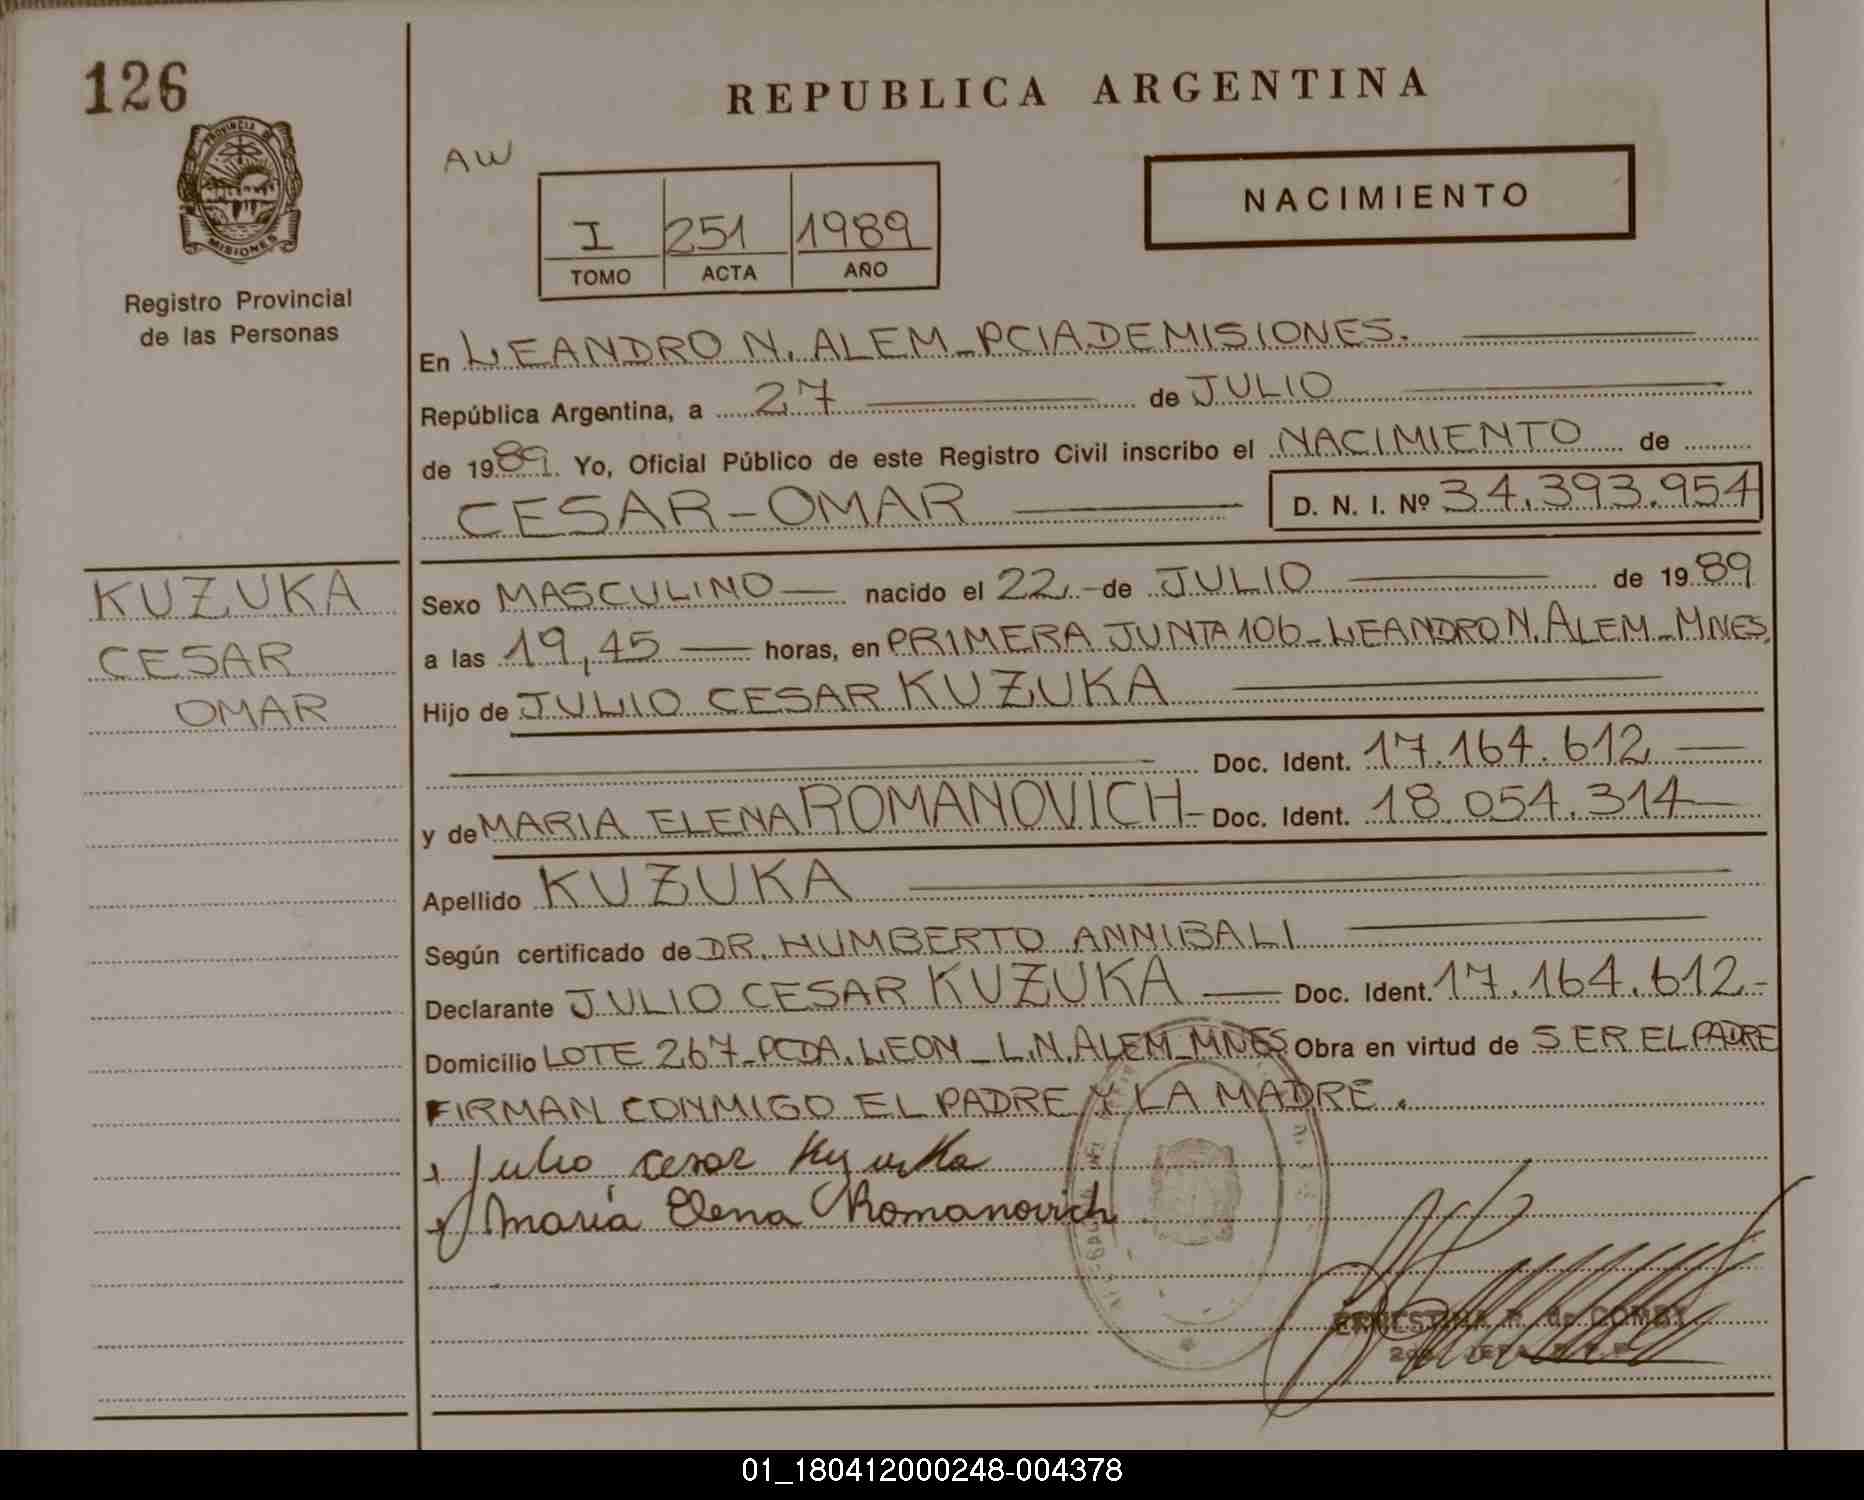 126
REPUBLICA ARGENTINA
PROVINCIA DE
MISIONES
Registro Provincial
de las Personas
AW
I 251 1989
TOMO ACTA AÑO
NACIMIENTO
En LEANDRO N. ALEM - PCIA DE MISIONES.
República Argentina, a 27 de JULIO
de 1989. Yo, Oficial Público de este Registro Civil inscribo el NACIMIENTO de
CESAR - OMAR D. N. I. Nº 34.393.954
KUZUKA
CESAR
OMAR
Sexo MASCULINO nacido el 22 - de JULIO de 1989
a las 19,45 horas, en PRIMERA JUNTA 106 - LEANDRO N. ALEM - MNES.
Hijo de JULIO CESAR KUZUKA
Doc. Ident. 17.164.612
y de MARIA ELENA ROMANOVICH - Doc. Ident. 18.054.314
Apellido KUZUKA
Según certificado de DR. HUMBERTO ANNIBALI
Declarante JULIO CESAR KUZUKA Doc. Ident. 17.164.612 -
Domicilio LOTE 267 - PCDA. LEON - L.N. ALEM - MNES Obra en virtud de SER EL PADRE
FIRMAN CONMIGO EL PADRE Y LA MADRE.
Julio Cesar Kuzuka
Maria Elena Romanovich
ERNESTINA de COMBY
01_180412000248-004378